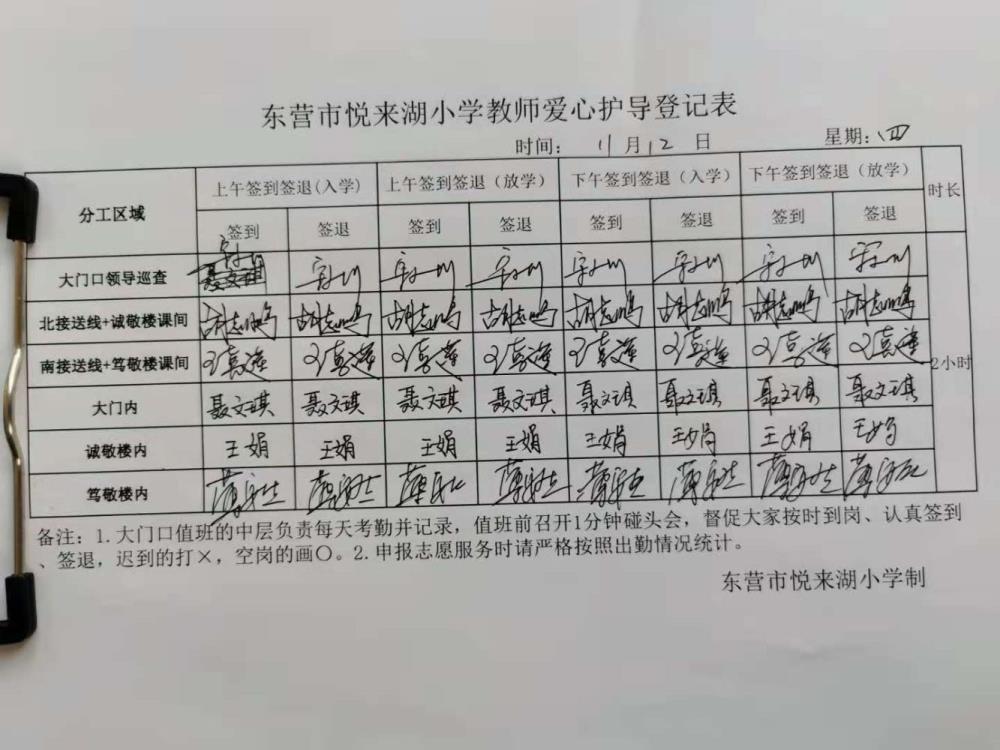 东营市悦来湖小学教师爱心护导登记表
时间： 11月12 日 星期：四
分工区域 上午签到签退(入学) 上午签到签退（放学） 下午签到签退（入学） 下午签到签退（放学） 时长
签到 签退 签到 签退 签到 签退 签到 签退
大门口领导巡查 聂文琪
北接送线+诚敬楼课间 胡志鸣 胡志鸣 胡志鸣 胡志鸣 胡志鸣 胡志鸣 胡志鸣 胡志鸣
南接送线+笃敬楼课间 2小时
大门内 聂文琪 聂文琪 聂文琪 聂文琪 聂文琪 聂文琪 聂文琪 聂文琪
诚敬楼内 王娟 王娟 王娟 王娟 王娟 王娟 王娟 王娟
笃敬楼内
备注：1.大门口值班的中层负责每天考勤并记录，值班前召开1分钟碰头会，督促大家按时到岗、认真签到
、签退，迟到的打×，空岗的画〇。2.申报志愿服务时请严格按照出勤情况统计。
东营市悦来湖小学制